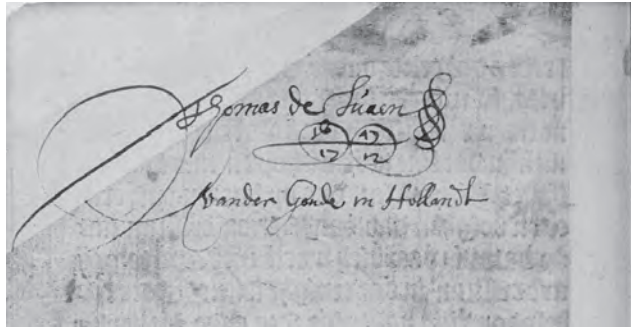 Thomas de Suaen
16 47
17 12
vander Goude in Hollandt